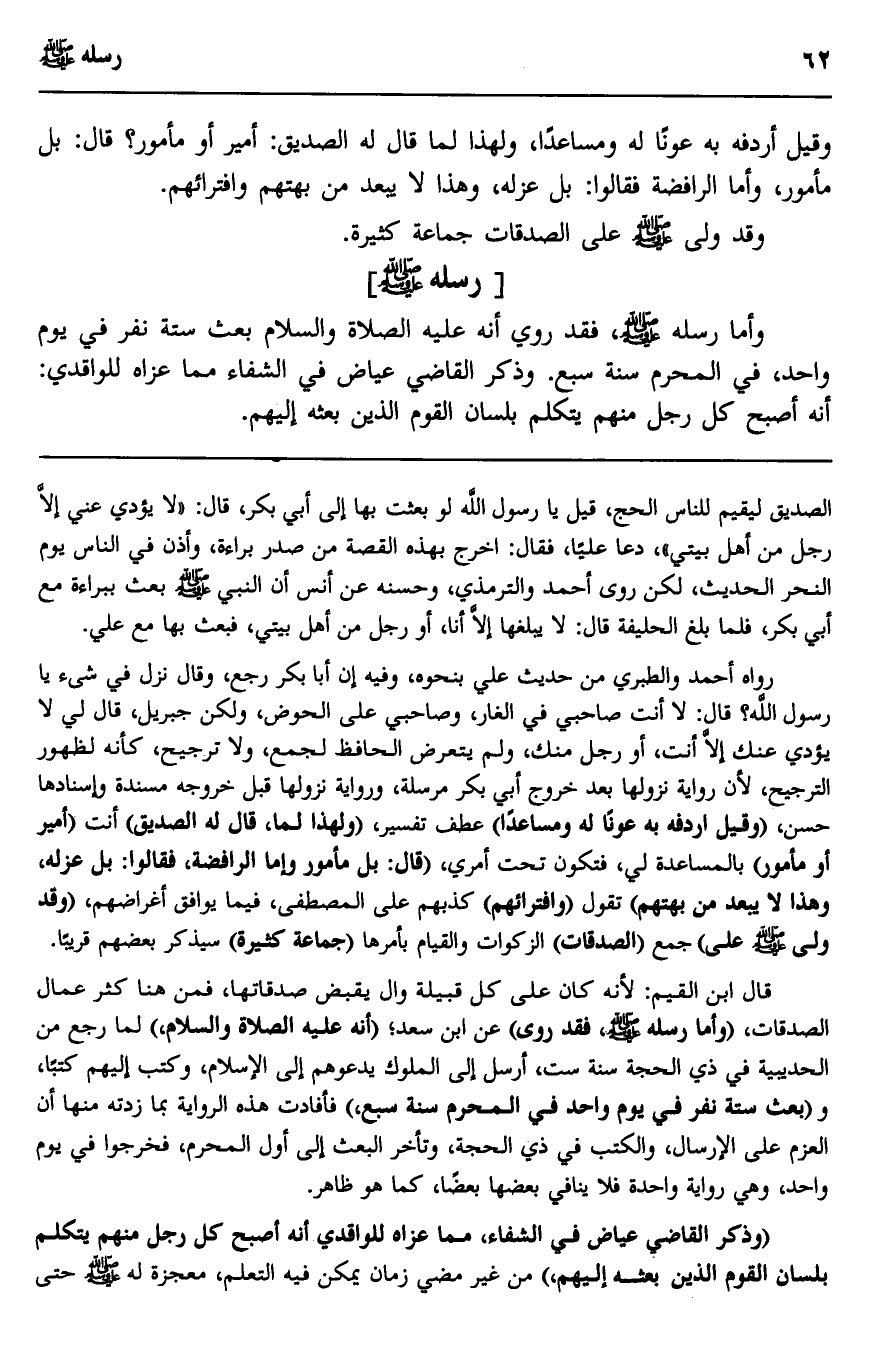 ٦٢
رسله ﷺ
وقيل أردفه به عونًا له ومساعدًا، ولهذا لما قال له الصديق: أمير أو مأمور؟ قال: بل
مأمور، وأما الرافضة فقالوا: بل عزله، وهذا لا يبعد من بهتهم وافترائهم.
وقد ولى ﷺ على الصدقات جماعة كثيرة.
[ رسله ﷺ]
وأما رسله ﷺ، فقد روي أنه عليه الصلاة والسلام بعث ستة نفر في يوم
واحد، في المحرم سنة سبع. وذكر القاضي عياض في الشفاء مما عزاه للواقدي:
أنه أصبح كل رجل منهم يتكلم بلسان القوم الذين بعثه إليهم.
الصديق ليقيم للناس الحج، قيل يا رسول اللَّه لو بعثت بها إلى أبي بكر، قال: «لا يؤدي عني إلاَّ
رجل من أهل بيتي»، دعا عليًا، فقال: اخرج بهذه القصة من صدر براءة، وأذن في الناس يوم
النحر الحديث، لكن روى أحمد والترمذي، وحسنه عن أنس أن النبي ﷺ بعث ببراءة مع
أبي بكر، فلما بلغ الحليفة قال: لا يبلغها إلاَّ أنا، أو رجل من أهل بيتي، فبعث بها مع علي.
رواه أحمد والطبري من حديث علي بنحوه، وفيه إن أبا بكر رجع، وقال نزل في شىء يا
رسول اللَّه؟ قال: لا أنت صاحبي في الغار، وصاحبي على الحوض، ولكن جبريل، قال لي لا
يؤدي عنك إلاَّ أنت، أو رجل منك، ولم يتعرض الحافظ لجمع، ولا ترجيح، كأنه لظهور
الترجيح، لأن رواية نزولها بعد خروج أبي بكر مرسلة، ورواية نزولها قبل خروجه مسندة وإسنادها
حسن، (وقيل اردفه به عونًا له ومساعدًا) عطف تفسير، (ولهذا لما، قال له الصديق) أنت (أمير
أو مأمور) بالمساعدة لي، فتكون تحت أمري، (قال: بل مأمور وإما الرافضة، فقالوا: بل عزله،
وهذا لا يبعد من بهتهم) تقول (وافترائهم) كذبهم على المصطفى، فيما يوافق أغراضهم، (وقد
ولى ﷺ على) جمع (الصدقات) الزكوات والقيام بأمرها (جماعة كثيرة) سيذكر بعضهم قريبًا.
قال ابن القيم: لأنه كان على كل قبيلة وال يقبض صدقاتها، فمن هنا كثر عمال
الصدقات، (وأما رسله ﷺ، فقد روى) عن ابن سعد؛ (أنه عليه الصلاة والسلام،) لما رجع من
الحديبية في ذي الحجة سنة ست، أرسل إلى الملوك يدعوهم إلى الإسلام، وكتب إليهم كتبًا،
و (بعث ستة نفر في يوم واحد في المحرم سنة سبع،) فأفادت هذه الرواية بما زدته منها أن
العزم على الإرسال، والكتب في ذي الحجة، وتأخر البعث إلى أول المحرم، فخرجوا في يوم
واحد، وهي رواية واحدة فلا ينافي بعضها بعضًا، كما هو ظاهر.
(وذكر القاضي عياض في الشفاء، مما عزاه للواقدي أنه أصبح كل رجل منهم يتكلم
بلسان القوم الذين بعثه إليهم،) من غير مضي زمان يمكن فيه التعلم، معجزة له ﷺ حتى